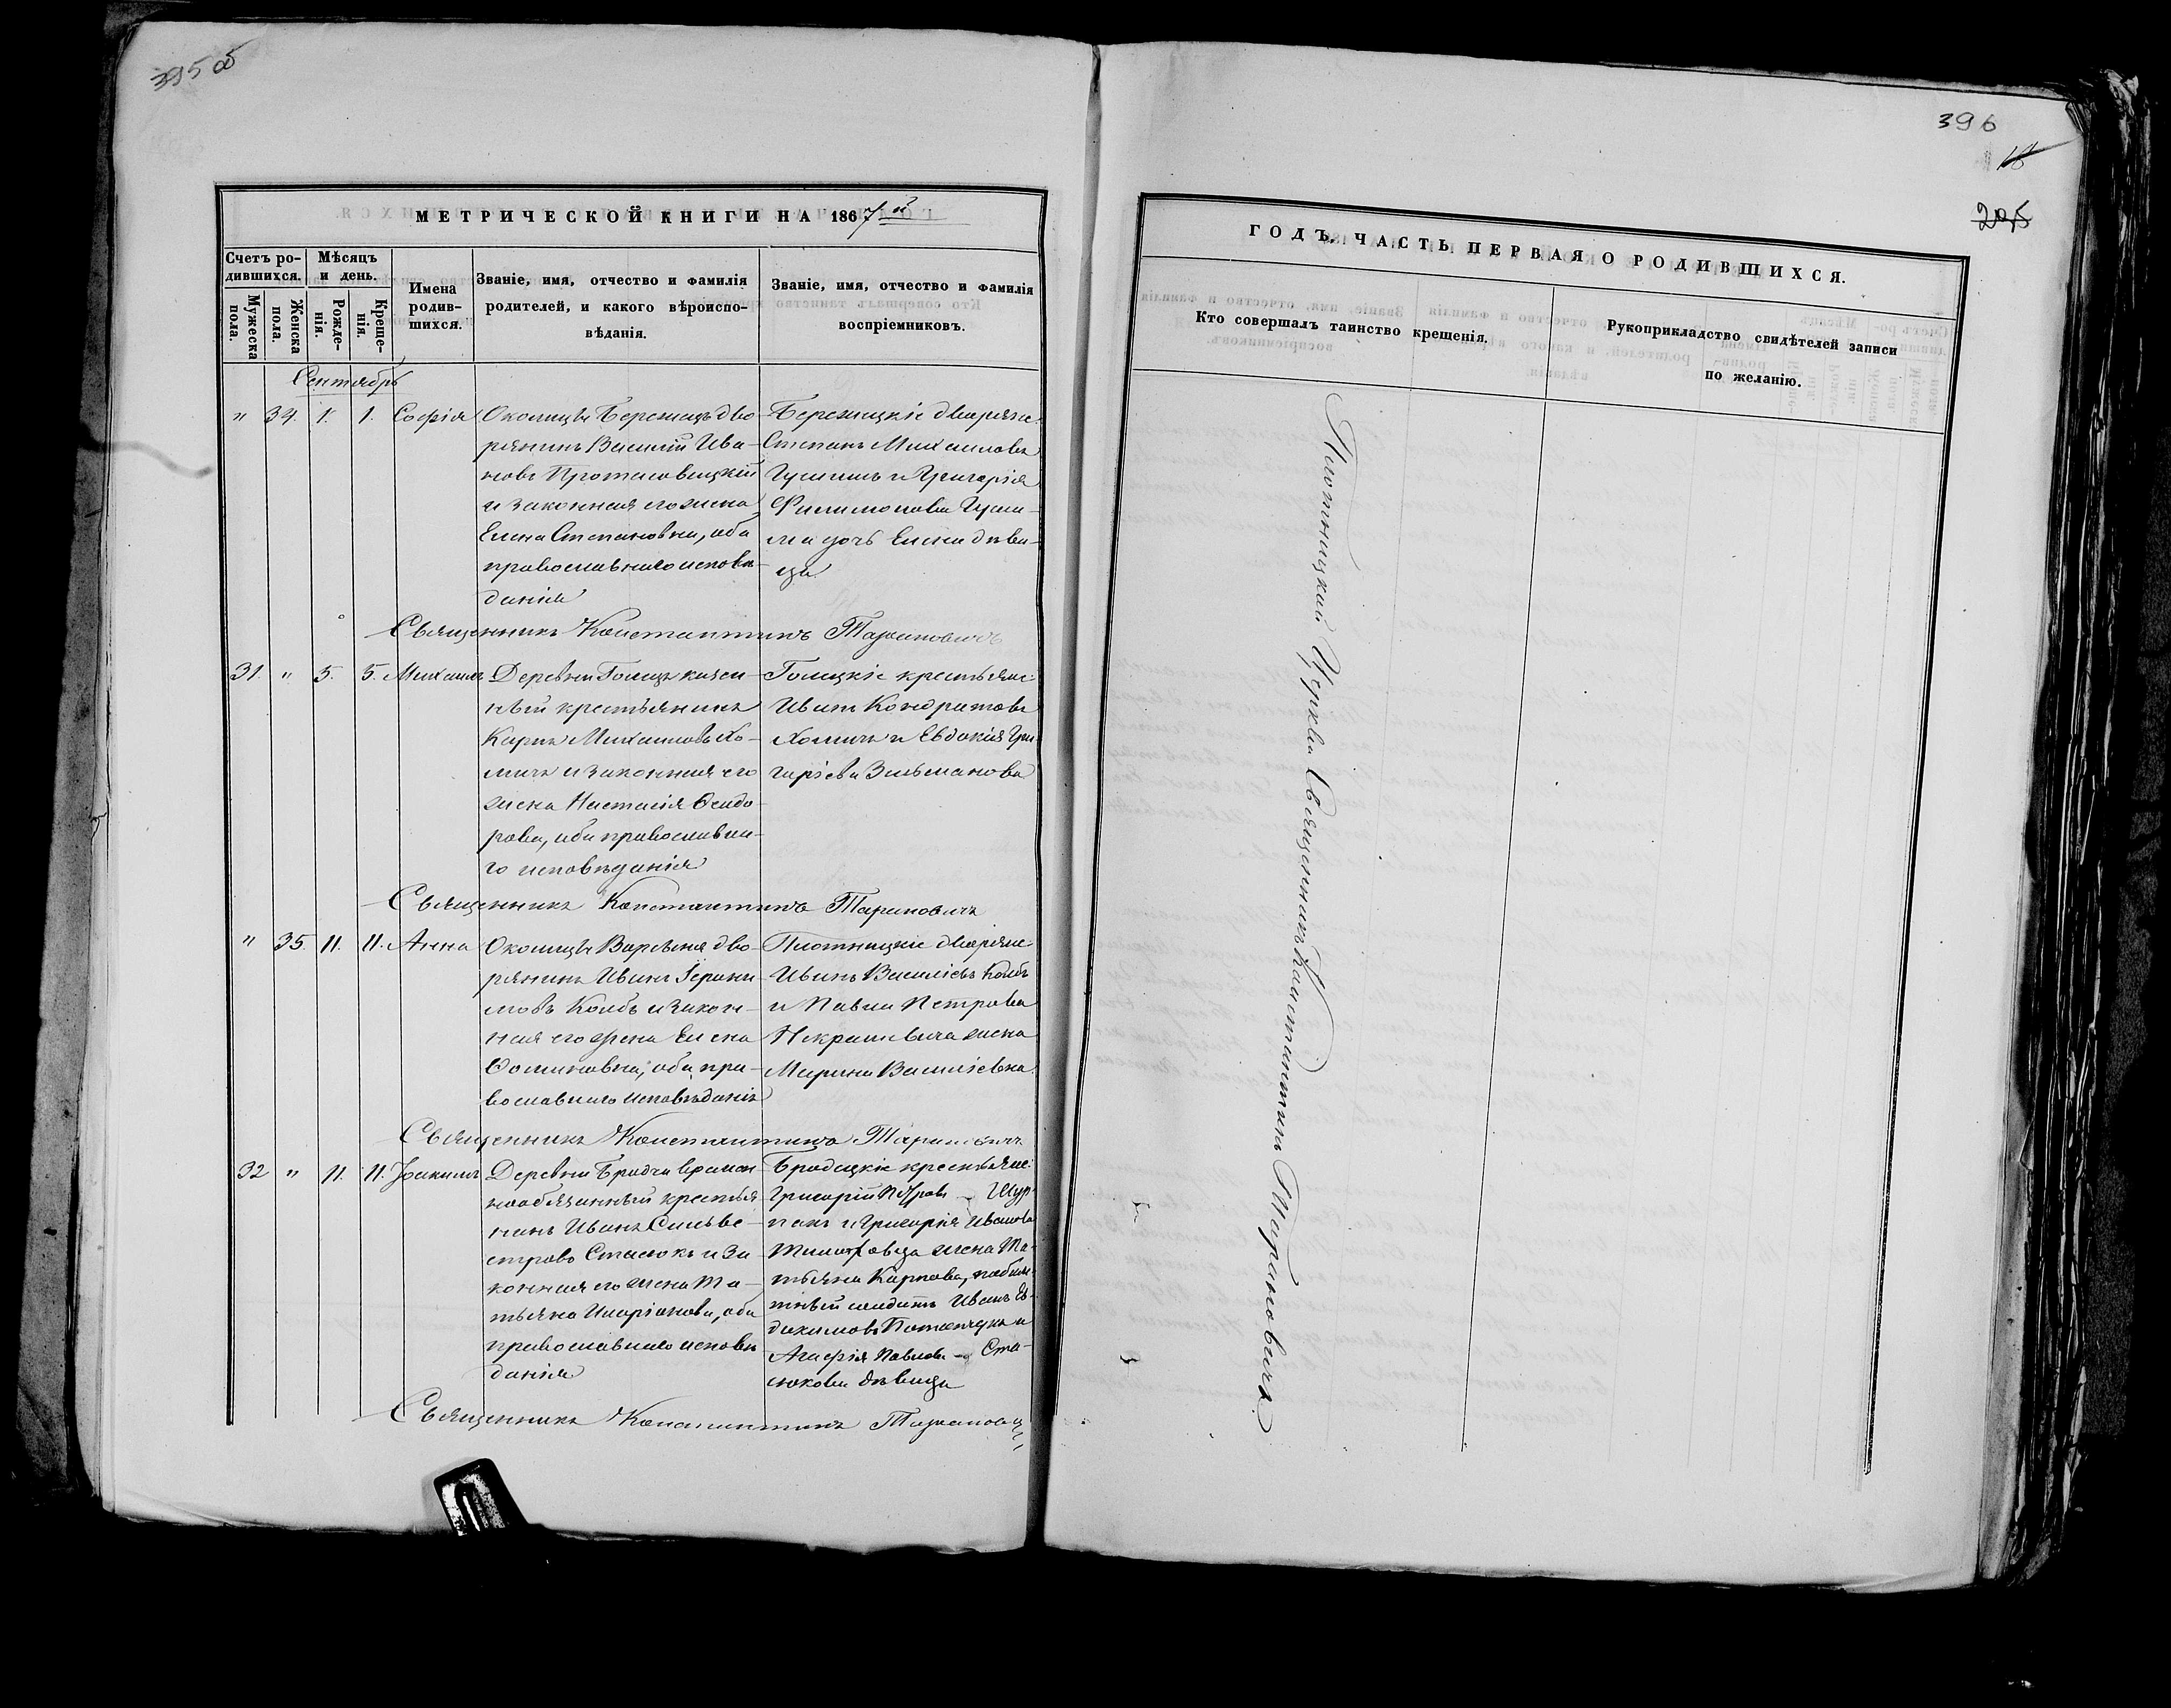 395 об
МЕТРИЧЕСКОЙ КНИГИ НА 1867й
Счетъ ро-
дившихся.
Мѣсяцъ
и день.
Мужеска
пола.
Женска
пола.
Рожде-
нія.
Креще-
нія.
Имена
родив-
шихся.
Званіе, имя, отчество и фамилія
родителей, и какого вѣроиспо-
вѣданія.
Званіе, имя, отчество и фамилія
воспріемниковъ.
Сентябрь
" 34. 1. 1. Софія
Околицы Бережицъ дво-
рянинъ Василій Ива-
новъ Протасовицкій
и законная его жена
Елена Степановна, оба
православнаго исповѣ-
данія
Бережицкіе дворяне:
Степанъ Михаиловъ
и Григорія
Филимонова
дочь Елена дѣви-
ца
Священникъ Константинъ Тарановичъ
31. " 5. 5. Михаилъ
Деревни Голецъ казен-
ный крестьянинъ
Карпъ Михаиловъ Хо-
мичъ и законная его
жена Настасія Ѳеодо-
рова, оба православна-
го исповѣданія
Голецкіе крестьяне:
Иванъ Кондратовъ
Хомичъ и Евдокія Гри-
горіева Зильманова
Священникъ Константинъ Тарановичъ
" 35. 11. 11. Анна
Околицы Вареьня дво-
рянинъ Иванъ Іерони-
мовъ Колбъ и закон-
ная его жена Елена
Ѳоминовна, оба пра-
вославнаго исповѣданія
Плотницкіе дворяне:
Иванъ Василіевъ Колбъ
и Павла Петрова
Некрашевича жена
Марина Василіевна.
Священникъ Константинъ Тарановичъ
32 " 11. 11. Іоакимъ
Деревни Бродча времен-
нообязанный крестья-
нинъ Иванъ Сильве-
стровъ Стасюкъ и за-
конная его жена Та-
тьяна Иларіонова, оба
православнаго исповѣ-
данія
Бродецкіе крестьяне:
Григорій Петровъ Шур-
пакъ и Григорія Иванова
жена Та-
тьяна Карпова,
солдатъ Иванъ Ев-
докимовъ и
Агафія Павлова Ста-
сюкова дѣвица
Священникъ Константинъ Тарановичъ
396
18
205
ГОДЪ. ЧАСТЬ ПЕРВАЯ О РОДИВШИХСЯ.
Кто совершалъ таинство крещенія.
Рукоприкладство свидѣтелей записи
по желанію.
Плотницкой Церкви Священникъ Константинъ Тарановичъ